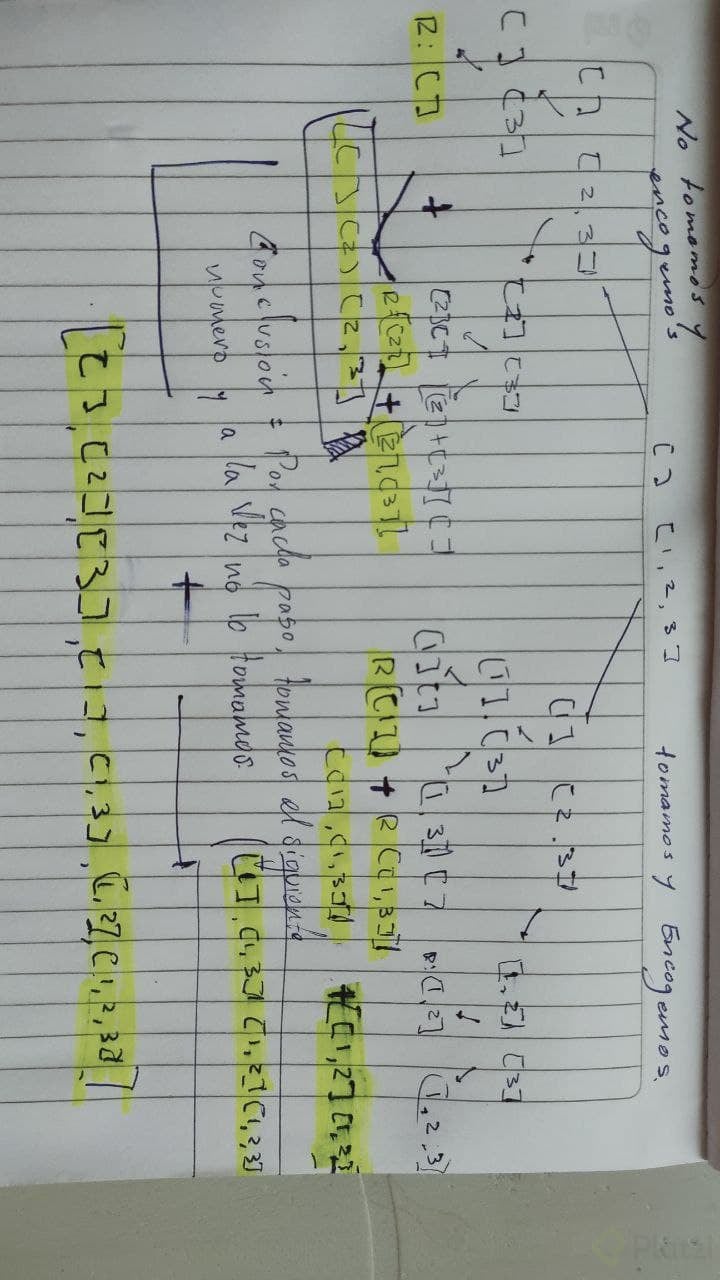 No tomamos y encogemos
tomamos y Encogemos.
[] [1,2,3]
[] [2,3]
[1] [2.3]
[] [3]
[2] [3]
[1].[3]
[1,2] [3]
R: []
+
[2][]
[[2]+[3]][]
[1][]
[1,3][]
R:[1,2]
[1,2,3]
R:[2]
+
[[2],[3]]
R[[1]] + R[[1,3]]
[[][2][2,3]]
[[1],[1,3]]
+[[1,2][1,2]
Conclusión : Por cada paso, tomamos el siguiente
numero y a la vez no lo tomamos.
[[1],[1,3][1,2][1,2,3]
+
[[],[2],[3],[1],[1,3],[1,2],[1,2,3]]
Platzi